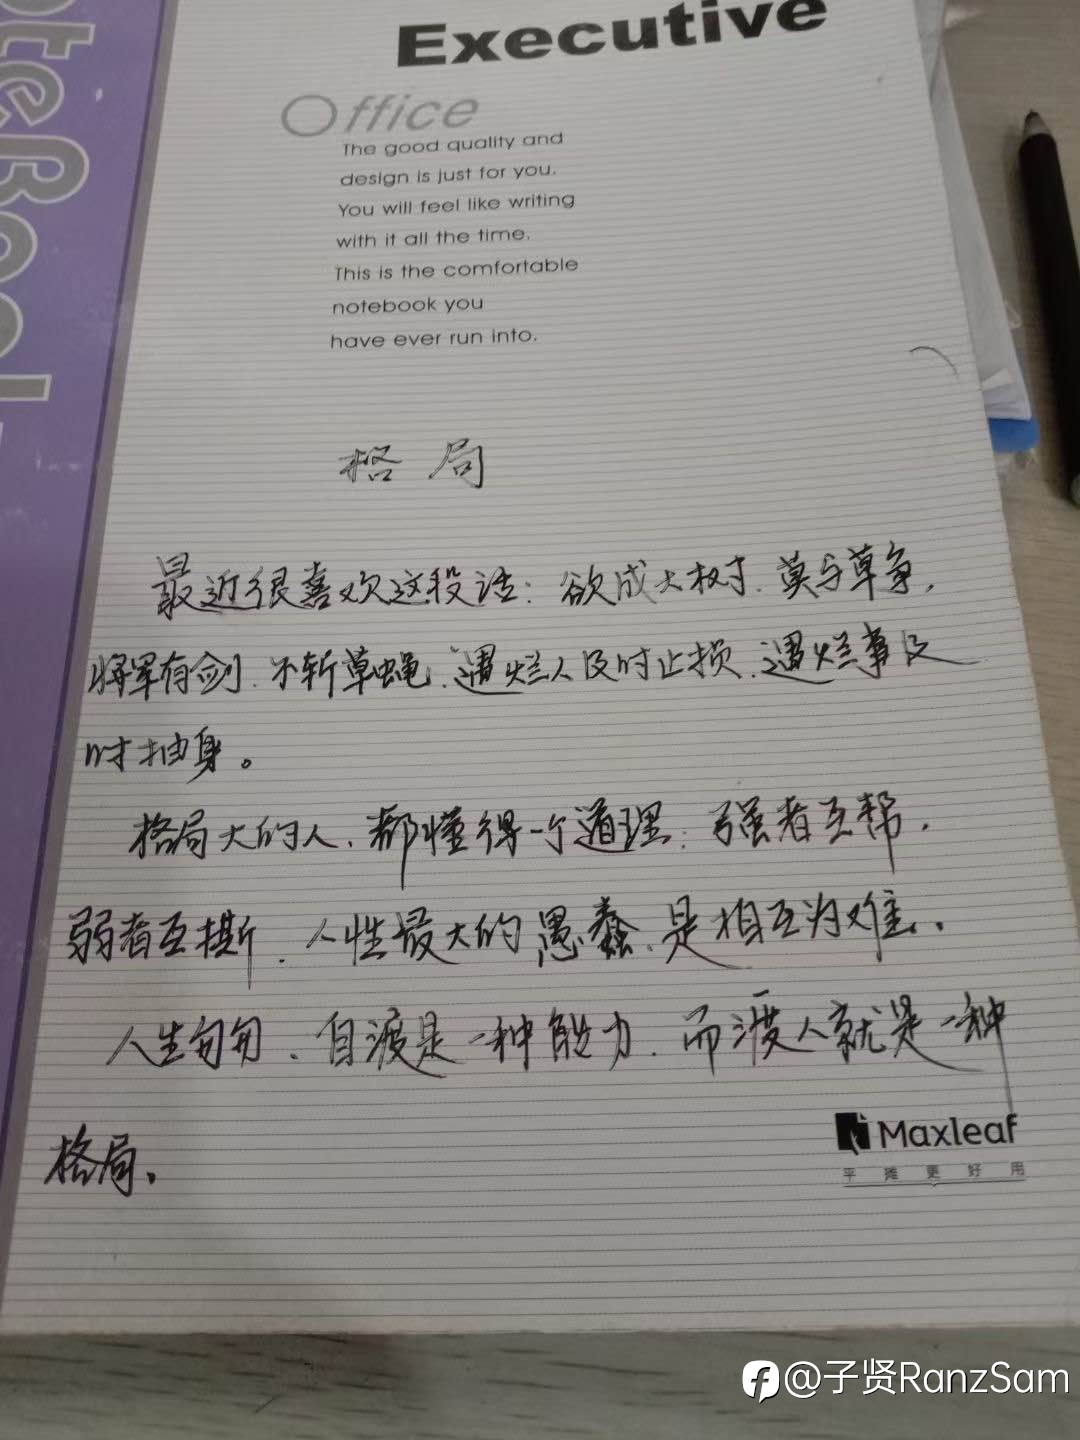 oteBook
Executive
Office
The good quality and
design is just for you.
You will feel like writing
with it all the time.
This is the comfortable
notebook you
have ever run into.
格局
最近很喜欢这段话：欲成大树、莫与草争，
将军有剑、不斩草蝇、遇烂人及时止损、遇烂事及
时抽身。
格局大的人、都懂得一个道理：强者互帮，
弱者互撕、人性最大的愚蠢、是相互为难、
人生匆匆、自渡是一种能力、而渡人就是一种
格局、
Maxleaf
平摊更好用
@子贤RanzSam